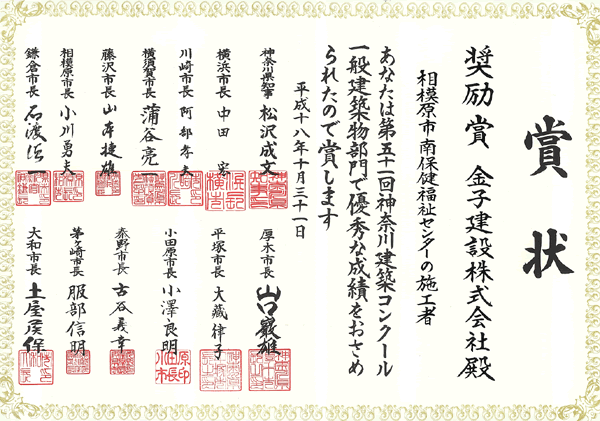 賞状
奨励賞 金子建設株式会社殿
相模原市南保健福祉センターの施工者
あなたは第五十一回神奈川建築コンクール
一般建築物部門で優秀な成績をおさめ
られたので賞します
平成十八年十月三十一日
神奈川県知事 松沢成文
横浜市長 中田 宏
川崎市長 阿部孝夫
横須賀市長 蒲谷亮一
藤沢市長 山本捷雄
相模原市長 小川勇夫
鎌倉市長 石渡徳一
厚木市長 山口巖雄
平塚市長 大藏律子
小田原市長 小澤良明
秦野市長 古谷義幸
茅ヶ崎市長 服部信明
大和市長 土屋侯保